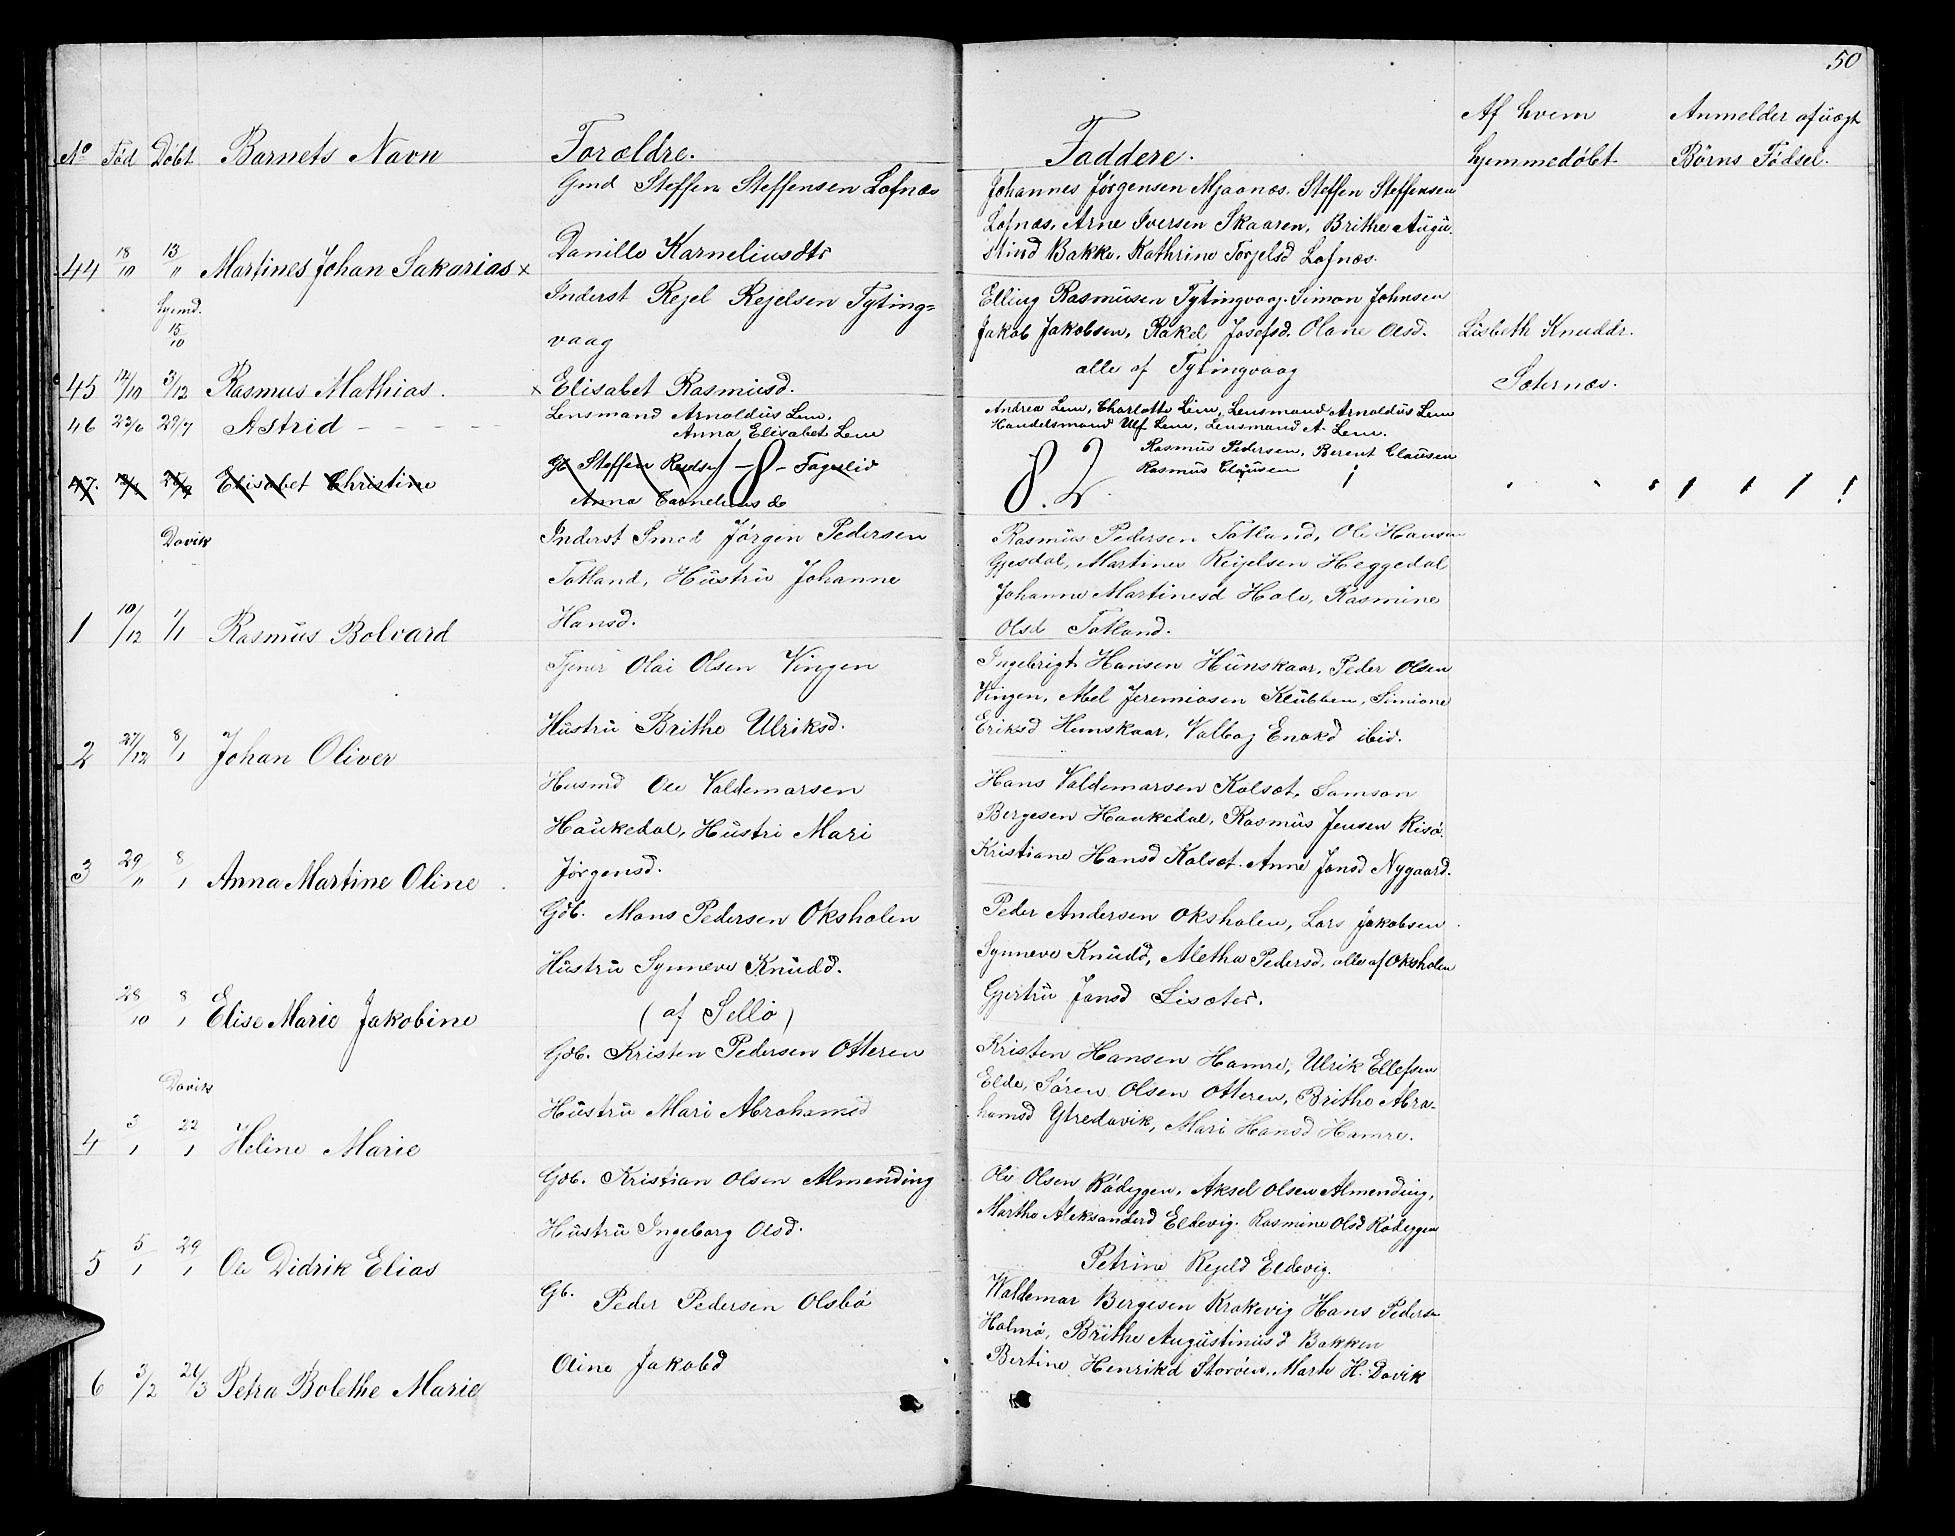 50
No Fød Døbt Barnets Navn Forældre. Faddere. Af hvem hjemmedøbt. Anmelder af uægt Børns Fødsel.
Gmd Steffen Steffensen Lofnæs
Danille Karneliusdtr
44 18/10 13/11 Martines Johan Sakarias x
Johannes Jørgensen Mjaanes, Steffen Steffensen
Lofnæs, Arne Iversen Skaaren, Brithe Augu-
stind Bakke, Kathrine Torjelsd Lofnæs.
hjemd. 15/10
Inderst Rejel Rejelsen Tyting=
vaag
45 12/10 3/12 Rasmus Mathias. x Elisabet Rasmusd.
Elling Rasmusen Tytingvaag. Simon Johnsen
Jakob Jakobsen, Rakel Josefsd. Olane Olsd.
alle af Tytingvaag
Lisbeth Knuddr.
Sæternæs.
46 23/6 29/7 Astrid - - - - -
Lensmand Arnoldus Lem,
Anna Elisabet Lem
Andrea Lem, Charlotte Lem, Lensmand Arnoldus Lem
Handelsmand Ulf Lem, Lensmand A. Lem.
47. Elisabet Christine
Gb Steffen Fagerlid
Anna Cornelius do
Rasmus Pedersen, Berent Clausen
Rasmus Clausen
8.
Davik
1 10/12 1/1 Rasmus Bolvard
Inderst Smed Jørgen Pedersen
Totland, Hustru Johanne
Hansd.
Rasmus Pedersen Totland, Ole Hansen
Gjesdal, Martines Reijelsen Heggedal
Johanne Martinesd Hole, Rasmine
Olsd Totland.
2 27/12 8/1 Johan Oliver
Tjener Olai Olsen Vingen
Hustru Brithe Ulriksd.
Ingebrigt Hansen Hunskaar, Peder Olsen
Vingen, Abel Jeremiasen Klubben, Simione
Eriksd Hunskaar, Valbog Enokd ibid.
3 29/11 8/1 Anna Martine Oline
Husmd Ole Valdemarsen
Haukedal, Hustri Mari
Jørgensd.
Hans Valdemarsen Kolset, Samson
Bergesen Haukedal, Rasmus Jensen Risø.
Kristiane Hansd Kolset. Anne Jansd Nygaard.
28/10 8/1 Elise Marie Jakobine
Gdb. Mons Pedersen Oksholen
Hustru Synneve Knudd.
(af Sellø)
Peder Andersen Oksholen, Lars Jakobsen
Synneve Knudd, Aletha Pedersd, alle af Oksholen
Gjertru Jansd Lisæter.
Davik
4 3/1 22/1 Heline Marie
Gdb. Kristen Pedersen Otteren
Hustru Mari Abrahamsd
Kristen Hansen Hamre, Ulrik Ellefsen
Elde, Søren Olsen Otteren, Brithe Abra-
hamsd Ytredavik, Mari Hansd Hamre.
5 5/1 29/1 Ole Didrik Elias
Gdb. Kristian Olsen Almending
Hustru Ingeborg Olsd.
Ole Olsen Rødeggen, Aksel Olsen Almending,
Marthe Aleksanderd Eldevig. Rasmine Olsd Rødeggen
Petrine Rejeld Eldevig.
6 3/2 26/3 Petra Bolethe Marie
Gb. Peder Pedersen Olsbø
Oline Jakobd
Waldemar Bergesen Krakevig Hans Pedersen
Holmø, Brithe Augustinusd Bakken
Bertine Henrikd Storøen, Marte H. Davik